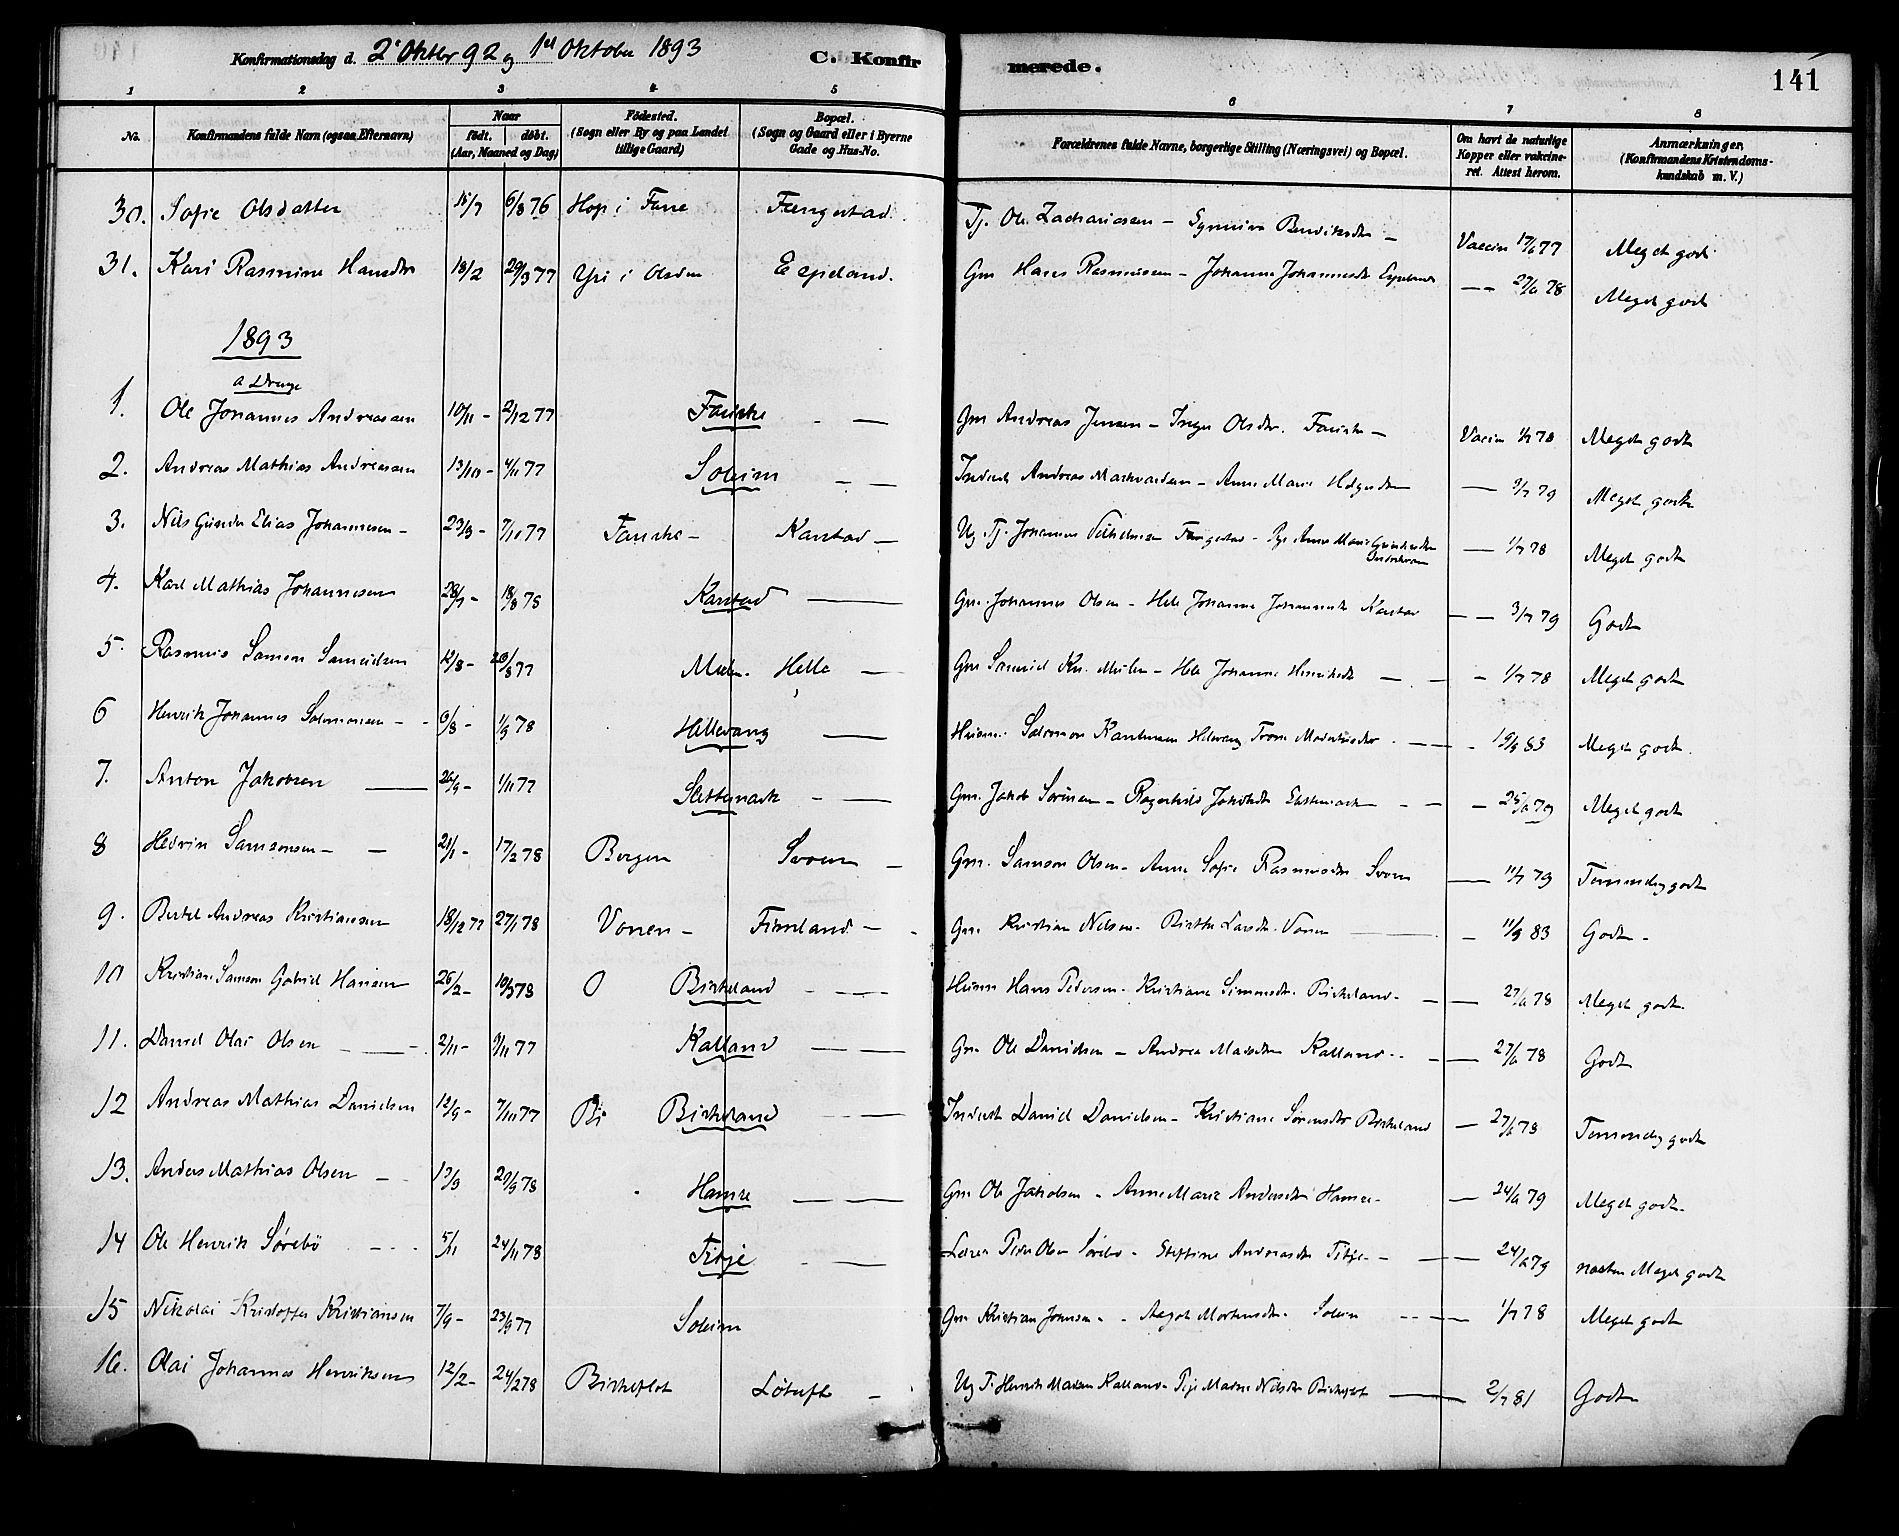 Konfirmationsdag d. 2' Oktbr 92 og 1st Oktober 1893 C. Konfirmerede. 141
1 2 3 4 5 6 7 8
No. Konfirmandens fulde Navn (ogsaa Efternavn) Naar født. døbt. (Aar, Maaned og Dag) Fødested. (Sogn eller By og paa Landet tillige Gaard) Bopæl. (Sogn og Gaard eller i Byerne Gade og Hus-No. Forældrenes fulde Navne, borgerlige Stilling (Næringsvei) og Bopæl. Om havt de naturlige Kopper eller vakcineret. Attest herom. Anmærkninger, (Konfirmandens Kristendomskundskab m. V.)
30. Sofie Olsdatter 15/7 6/8 76 Hop i Fane Fengestad Tj. Ole Zachariasen - Synnive Bendiksdtr - Vaccin 77 Meget godt
31. Kari Rasmine Hansdtr 18/2 29/3 77 i Olden Espeland. Gm Hans Rasmusen - Johanne Johannesdt Espeland 78 Meget godt
1893
a Drenge
1. Ole Johannes Andreassen 10/11 - 2/12 77 Fauske Gm Andreas Jensen - Inger Olsdtr. Fauske - Vaccin 1/7 78 Meget godt
2. Andreas Mathias Andreassen 13/10 - 4/11 77 Soleim Inderst Andreas - Anne Marie Helgesdtr 79 Meget godt
3. Nils Gunder Elias Johannesen - 23/9 - 7/10 77 Fauske - Karstad - Ug. Tj. Johannes Vilhelmsen Fengestad - Pige Anne Marie 1/7 78 Meget godt
4. Karl Mathias Johannesen 28/7 - 18/8 78 Karstad Gm. Johannes Olsen - Hele Johanne Johannesdt Karstad 3/7 79 Godt
5. Rasmus Samson Samuelsen 12/8 - 26/8 77 Helle Gm Samuel Kr. - Hele Johanne Henriksdt 1/7 78 Meget godt
6 Henrik Johannes Salomonsen 6/8 - 1/9 78 Hillevang Husm. Salomon Hillevang 83 Meget godt.
7. Anton Jakobsen 26/9 - 1/11 77 Slettemark Gm. Jakob Sørensen - Slettemark 25/6 79 Meget godt
8 Hedvin Samsonsen 21/1 - 17/2 78 Bergen Svoen Gm. Samson Olsen - Anne Sofie Rasmusdtr Svoen 11/7 79 Temmelig godt
9. Bertel Andreas Kristiansen 18/12 77 27/1 78 Vonen - Fimland Gm. Kristian Nilsen - Birthe Larsdt. Vonen 11/9 83 Godt -
10 Kristian Samson Gabriel Hansen 26/2 - 10/3 78 O Birkeland Husm Hans Pedersen - Kristiane Simonsdtr Birkeland 27/6 78 Meget godt
11. Daniel Olai Olsen 2/11 - 9/11 77 Kalland Gm Ole Danielsen - Andrea Madsdtr Kalland 27/6 78 Godt
12 Andreas Mathias Danielsen 12/9 - 7/10 77 Bi Birkeland Inderst Daniel Danielsen - Kristiane Sørensdtr Birkeland 27/6 78 Temmelig godt
13. Anders Mathias Olsen 17/9 29/9 78 Hamre Gm Ole Jakobsen - Anne Marie Andersdtr Hamre 24/6 79 Meget godt.
14 Ole Henrik Sørebø 5/11 24/11 78 Titje Lærer Peder Olsen Sørebø - Steffine Andreasdt Titje 24/6 79 næsten Meget godt
15 Nikolai Kristoffer Kristiansen 7/9 - 23/9 77 Soleim Gm Kristian Johnsen - Aagot Mortensdt. Soleim 1/7 78 Meget godt
16. Olai Johannes Henriksen 12/2 - 24/2 78 Birkeflot Løtuft Ug T. Henrik Madsen Kalland - Pige Nilsdtr Birkeflot 2/7 81 Godt